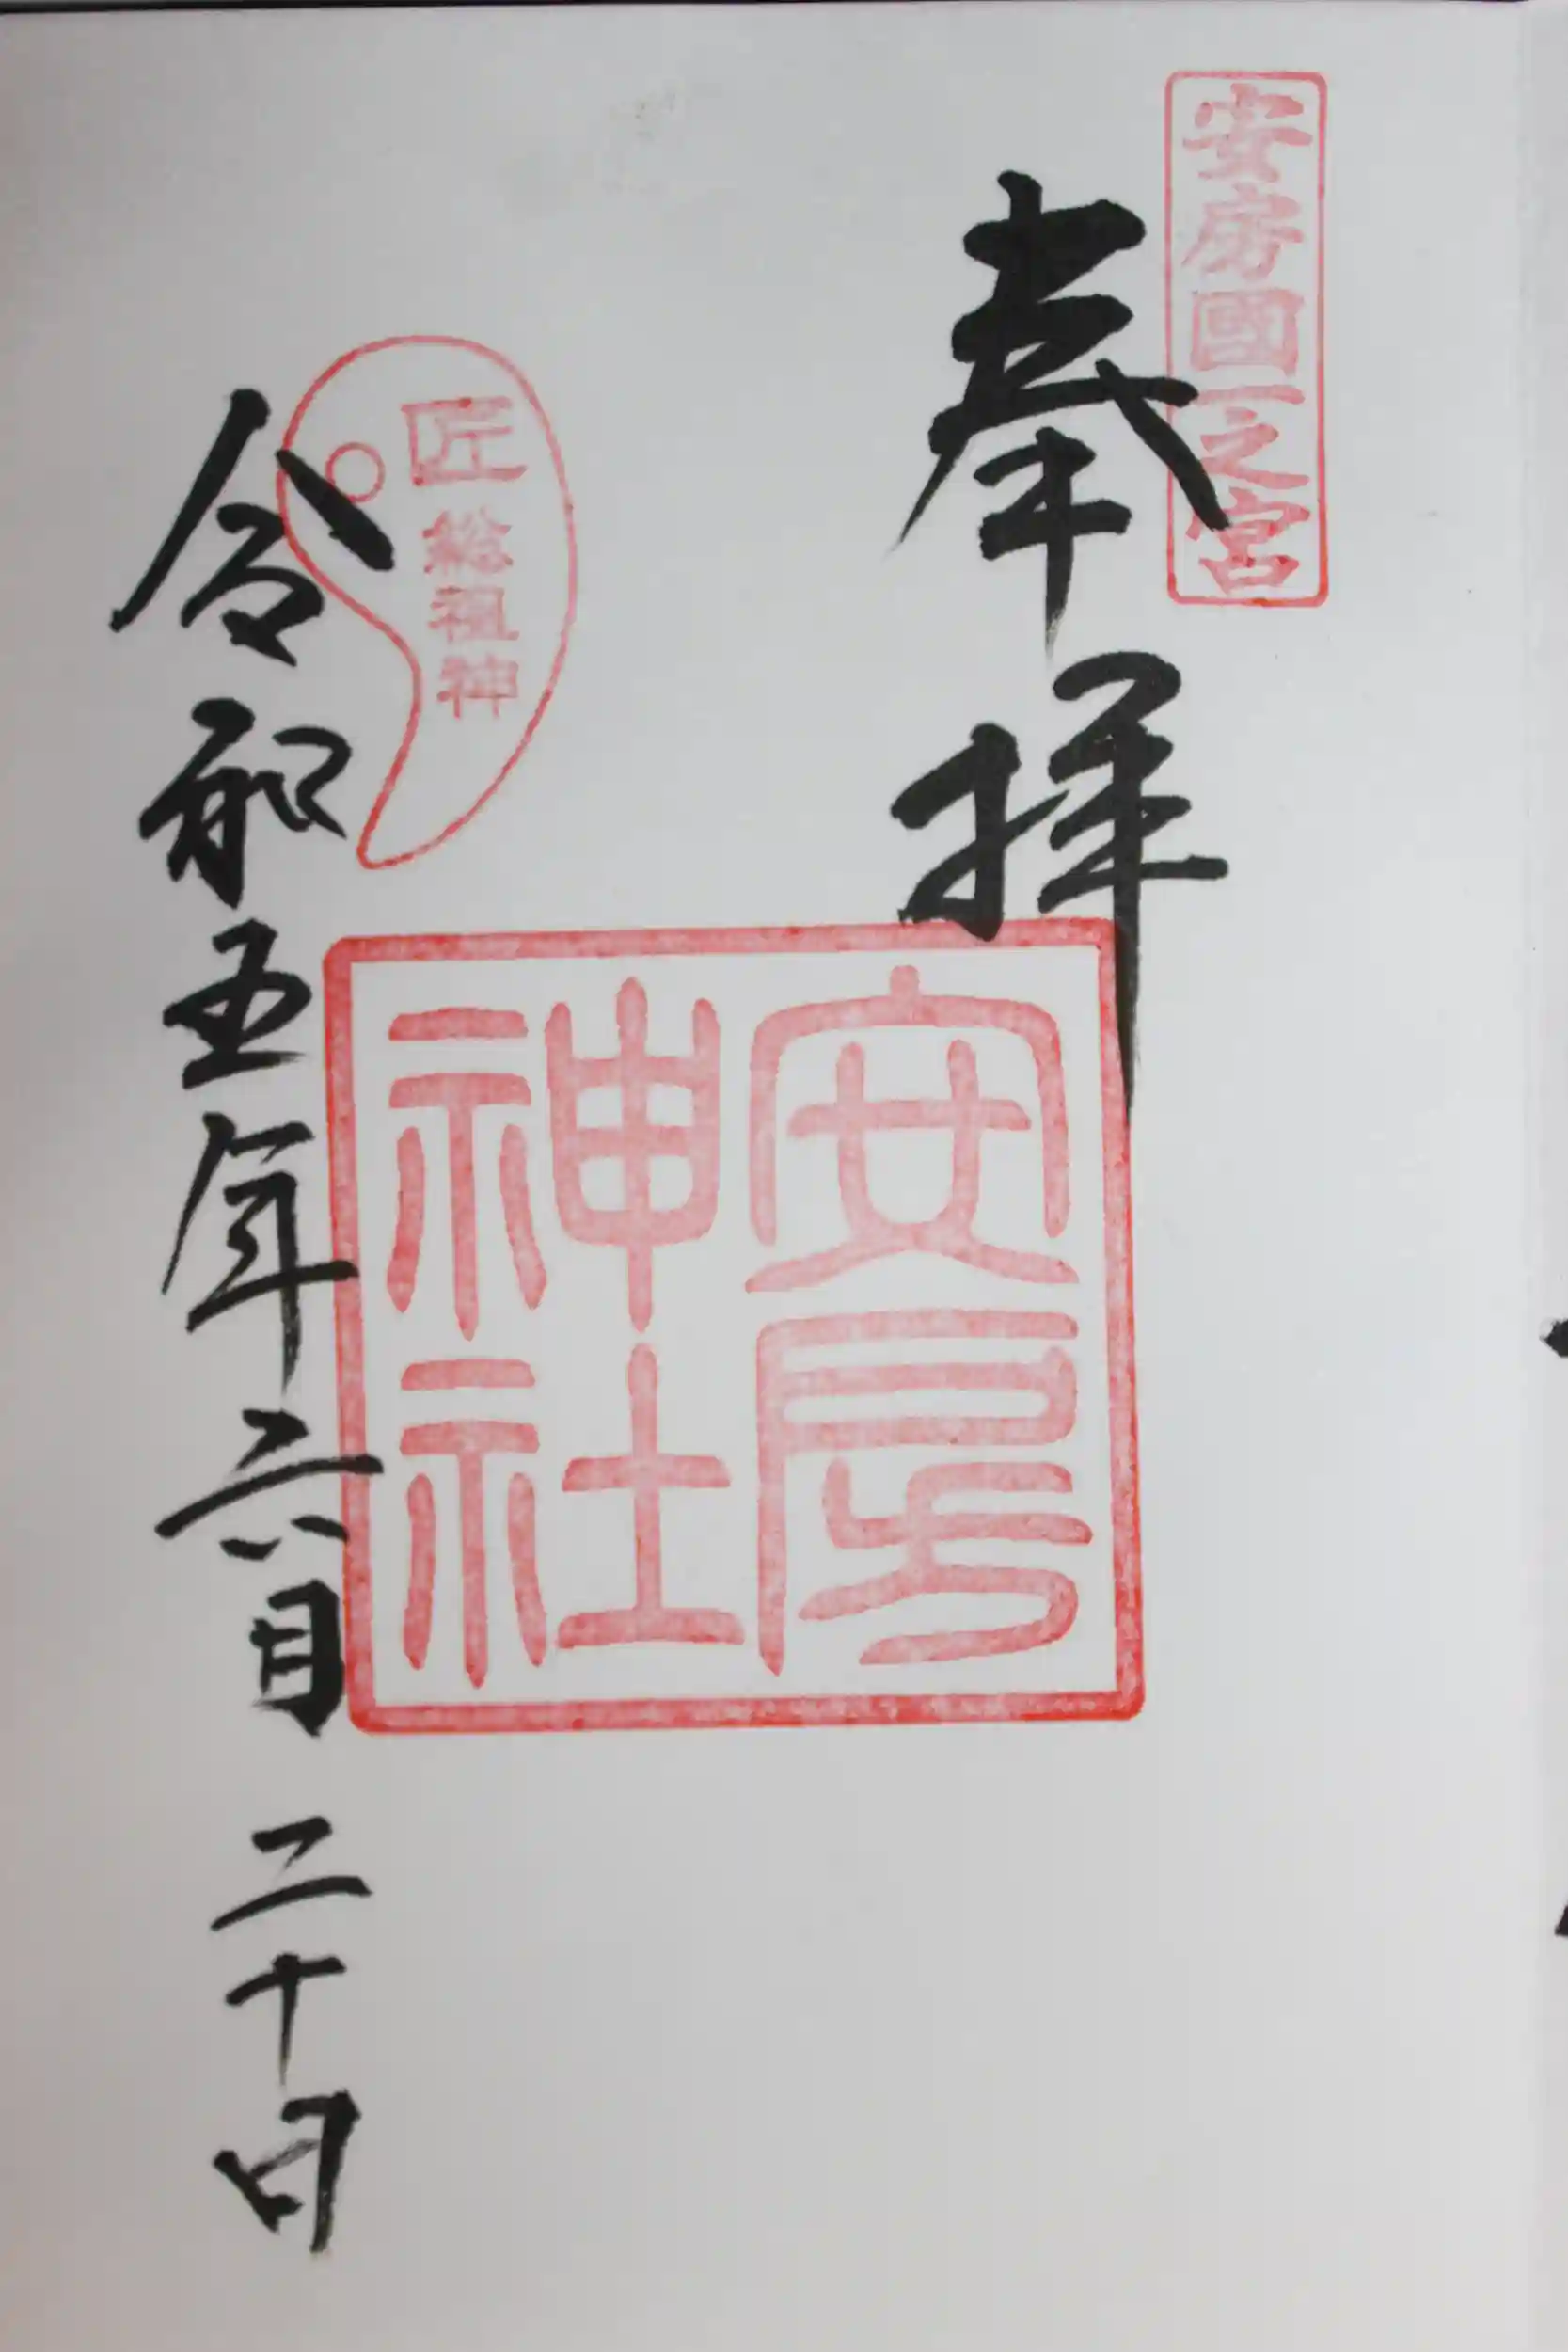 安房國一之宮
奉拝
安房神社
匠総祖神
令和五年六月二十日